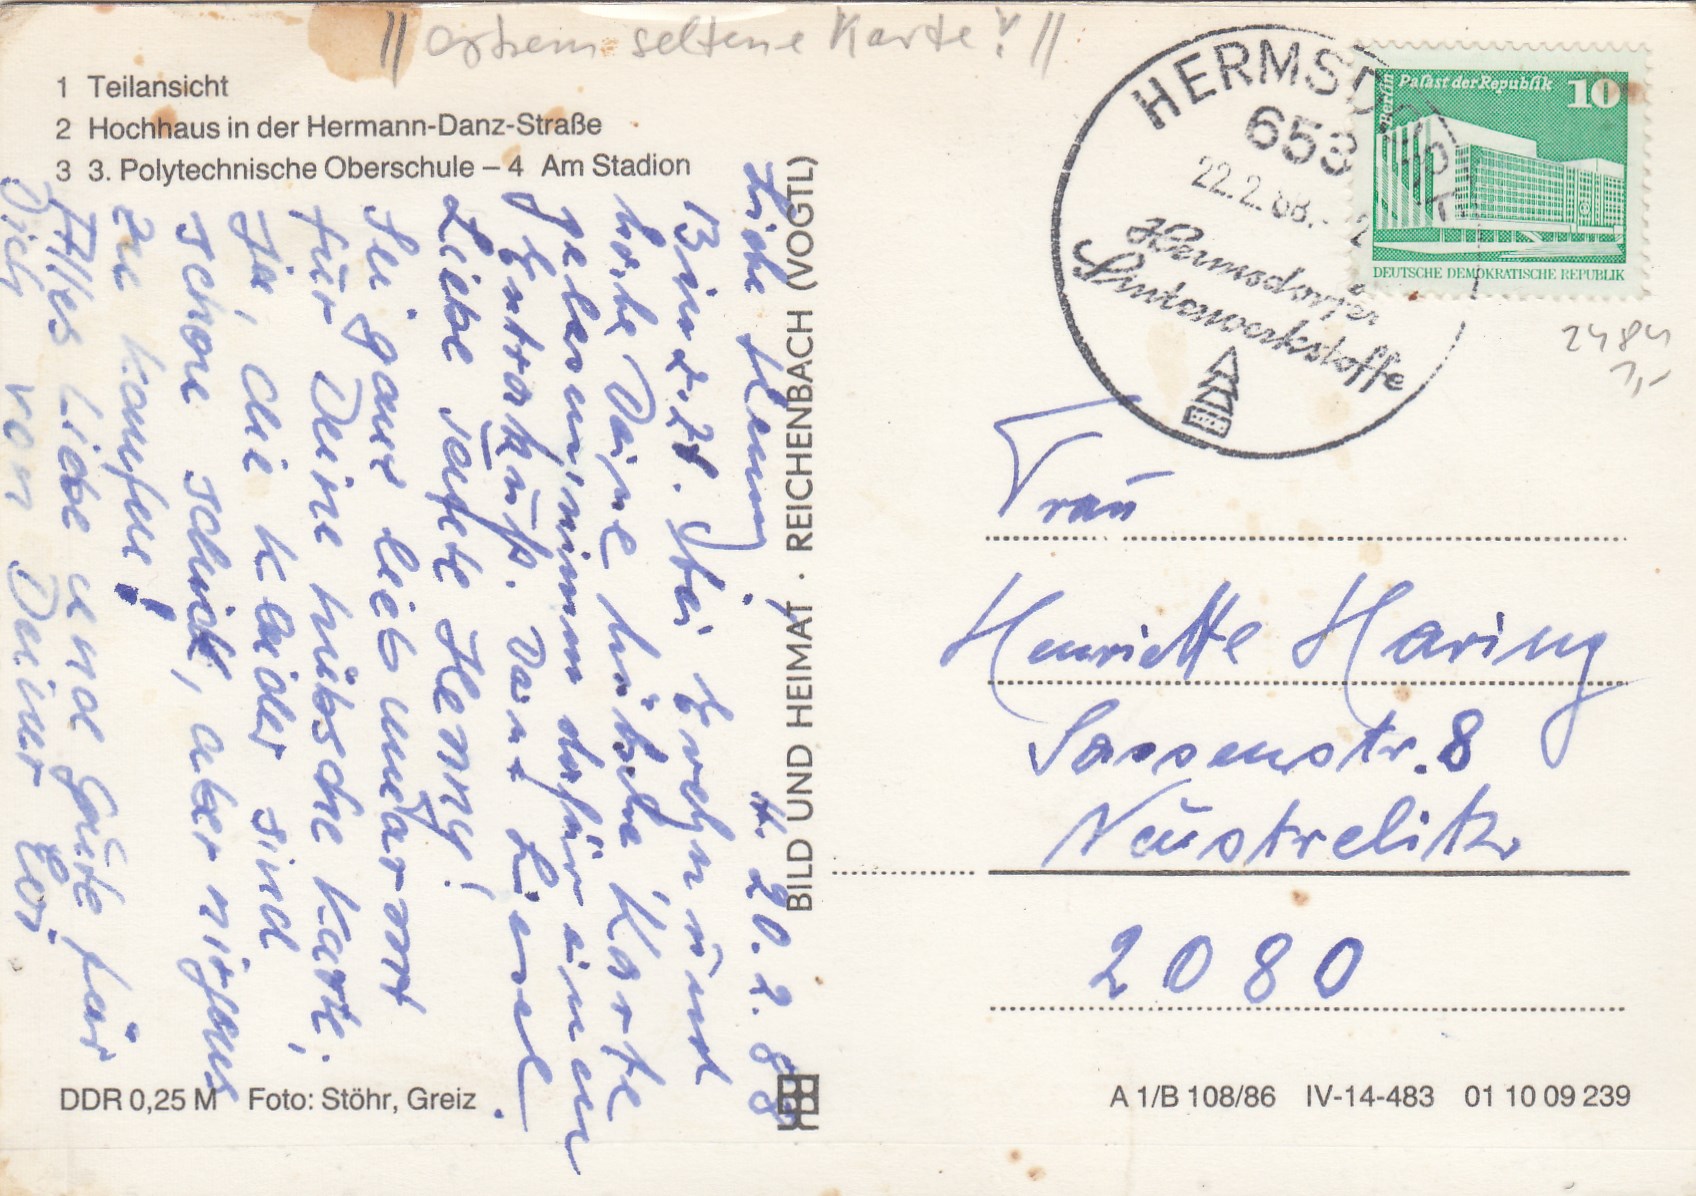 // extrem seltene Karte! //
1 Teilansicht
2 Hochhaus in der Hermann-Danz-Straße
3 3. Polytechnische Oberschule – 4 Am Stadion
HERMSD
653
22.2.88.-
Hermsdorfer
Sinterwerkstoffe
Berlin
Palast der Republik
10
DEUTSCHE DEMOKRATISCHE REPUBLIK
2484
1,-
Liebe Henny, H. 20.2.88
Bin z. Zt. bei Evchen und
habe Deine hübsche Karte
gelesen, nimm dafür einen
Extrakuß. Dank Liesel.
Liebe gute Henny!
Sei ganz lieb umgarmt
für Deine hübsche Karte.
Ja, die Kleider sind
schon schick, aber nirgens
zu kaufen!
Alles Liebe und Gute für
Dich von Deiner
BILD UND HEIMAT · REICHENBACH (VOGTL)
Frau
Henriette Haring
Sassenstr. 8
Neustrelitz
2080
DDR 0,25 M Foto: Stöhr, Greiz
A 1/B 108/86 IV-14-483 01 10 09 239